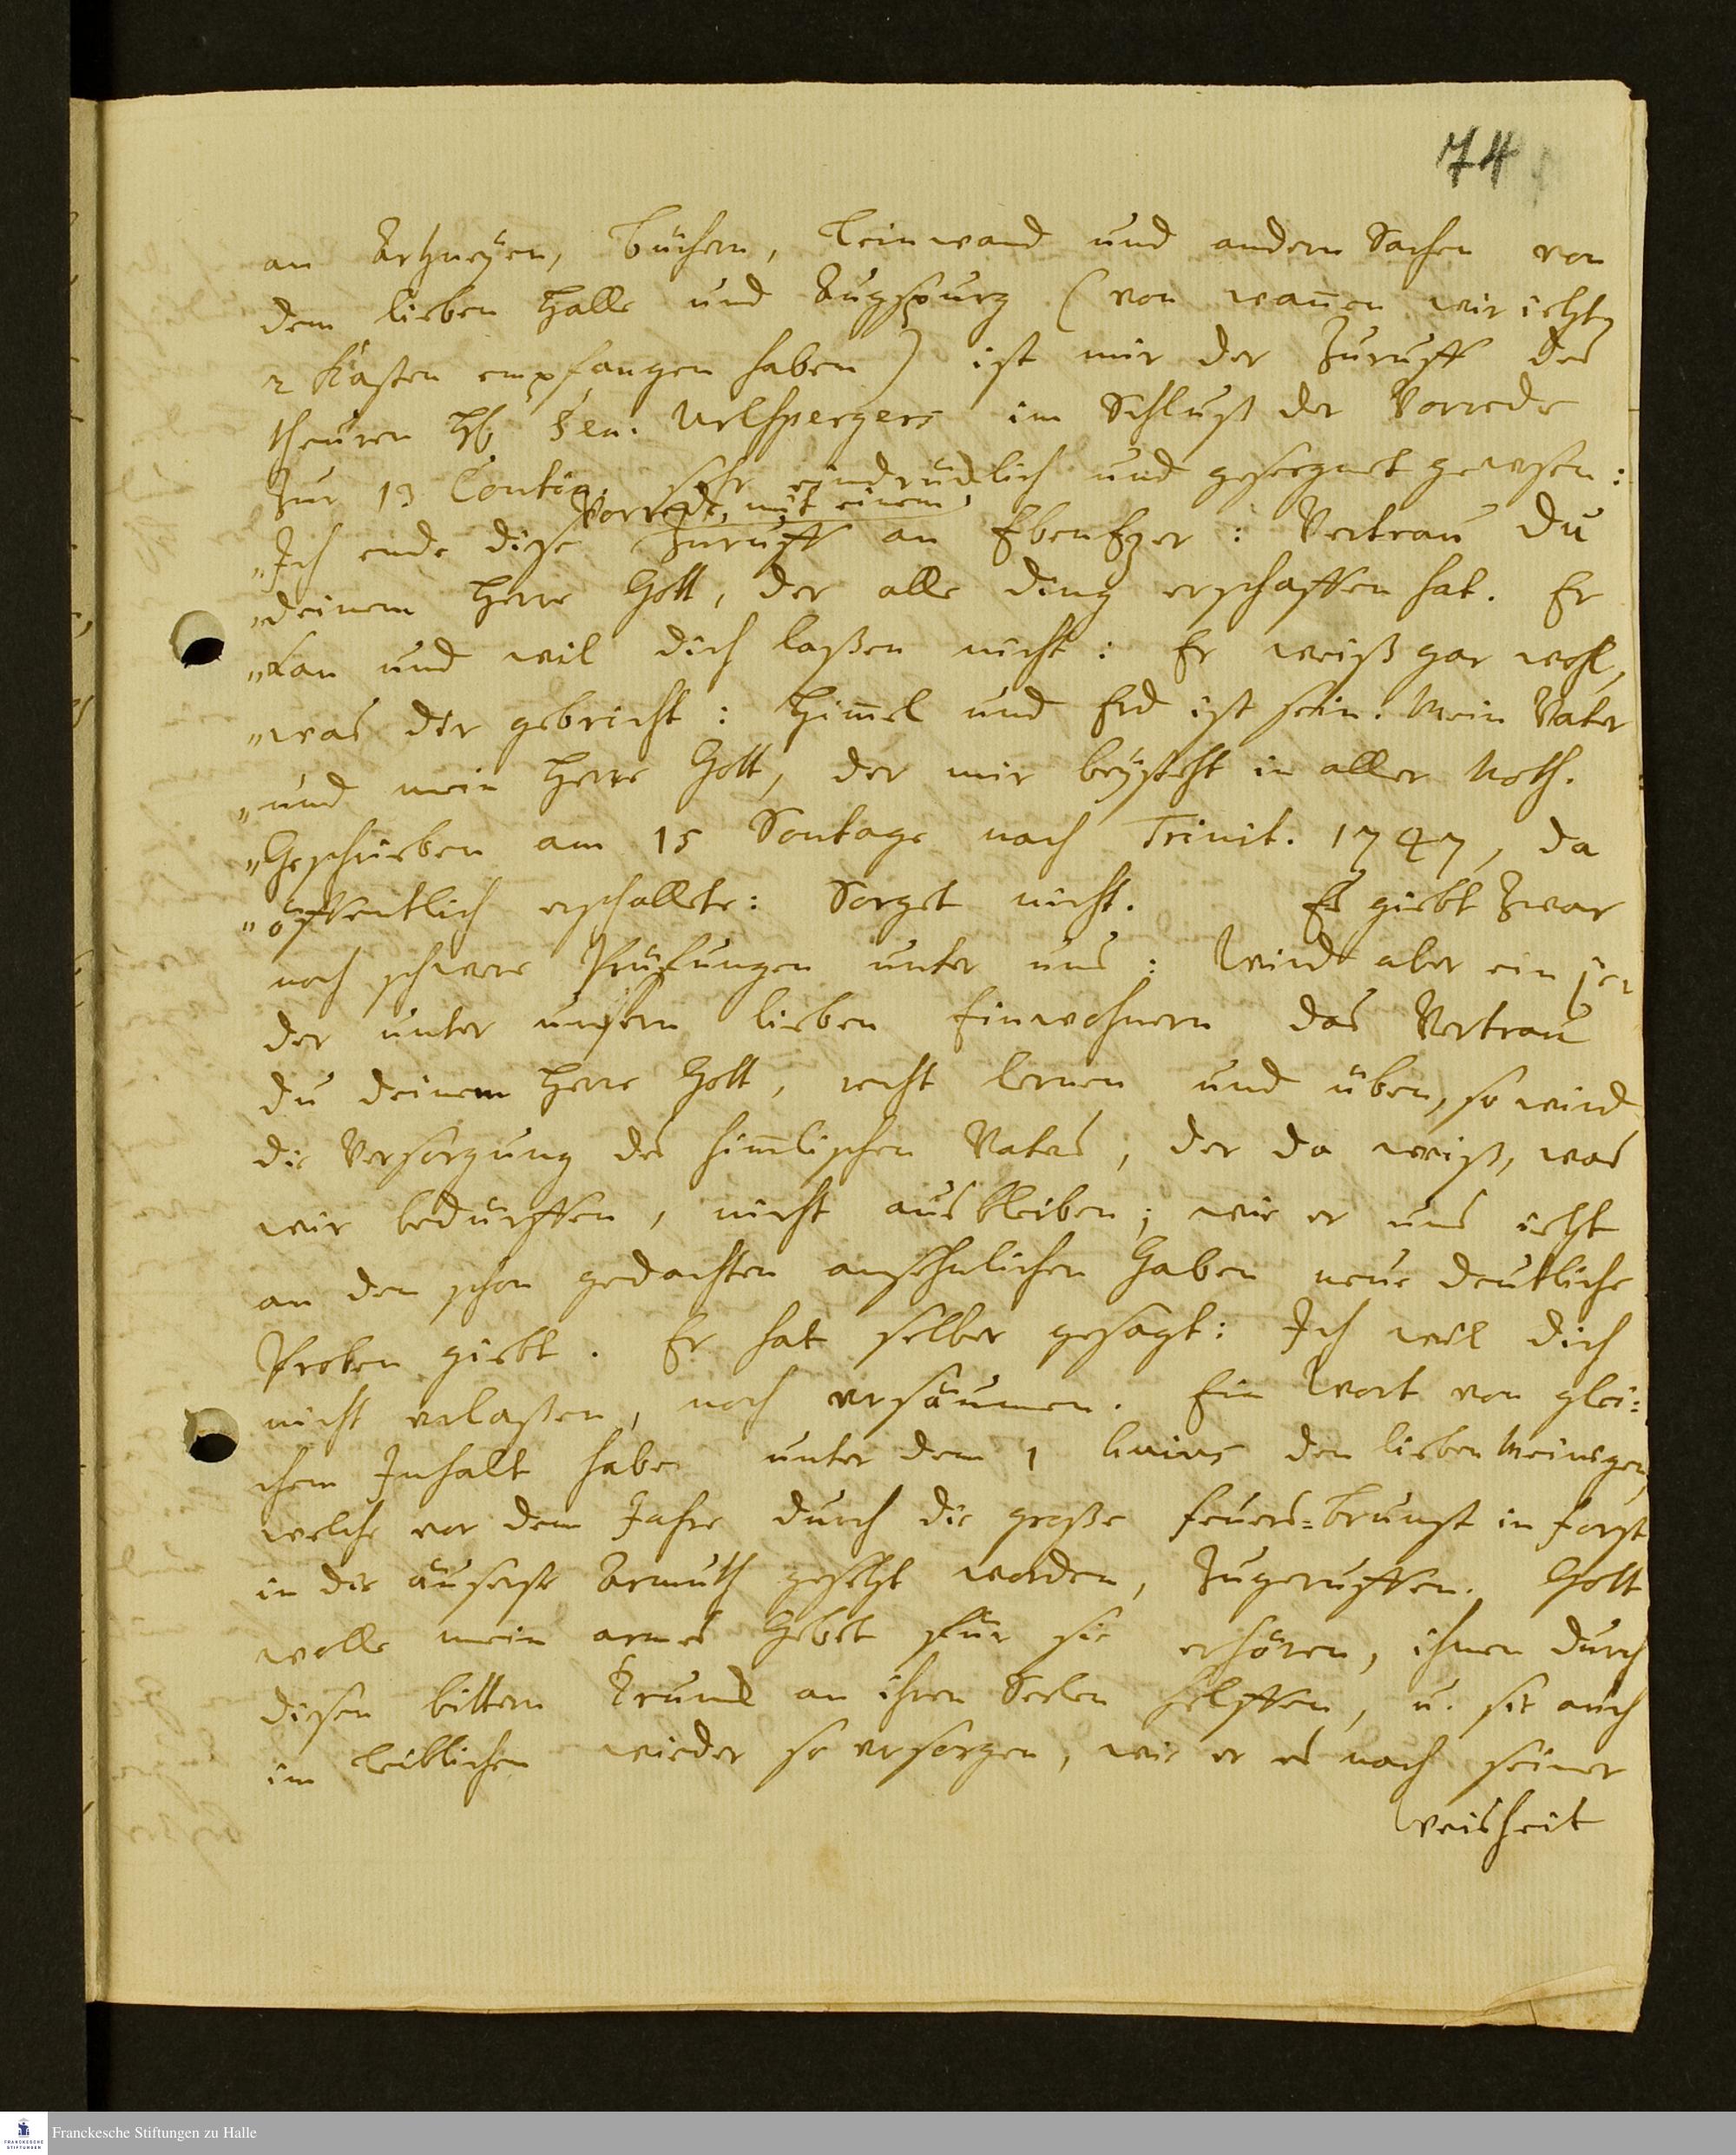 74
an Artzneÿen, Büchern, Leinwand und andern Sachen von
dem lieben Halle und Augspurg (von wannen wir ietzt
2 Kästen empfangen haben) ist mir der Zuruff des
theuren H. Sen. Urlspergers im Schluß der Vorrede
zur 13 Contin. sehr eindrücklich und gesegnet gewesen:
Vorrede, mit einem
„Ich ende diese Zuruff an EbenEzer: Vertrau du
„deinem Herre Gott, der alle ding erschaffen hat. Er
„kan und wil dich laßen nicht: Er weiß gar wohl,
„was dir gebricht: Himel und Erd ist sein. Mein Vater
„und mein Herre Gott, der mir beÿsteht in aller Noth.
„Geschrieben am 15 Sontage nach Trinit. 1747, da
„öffentlich erschallete: Sorget nicht. Es giebt zwar
noch schwere Prüfungen unter uns: Wird aber ein je-
der unter unsern lieben Einwohnern das Vertrau
du deinem Herre Gott, recht lernen und üben, so wird
die Versorgung des himlischen Vaters, der da weiß, was
wir bedürffen, nicht ausbleiben; wie er uns ietzt
an den schon gedachten ansehnlichen Gaben neue deutliche
Proben giebt. Er hat selber gesagt: Ich wil dich
nicht verlaßen, noch versäumen. Ein Wort von glei=
chem Inhalt habe unter dem 1 huius den lieben Meinigen,
welche vor dem Jahre durch die große Feuers=Brunst in Forst
in die äuserste Armuth gesetzt worden, zugeruffen. Gott
wolle mein armes Gebet für sie erhören, ihnen durch
diesen bittern Trunk an ihren Seelen helffen, u. sie auch
im leiblichen wieder so versorgen, wie er es nach seiner
Weisheit
Franckesche Stiftungen zu Halle
FRANCKESCHE
STIFTUNGEN